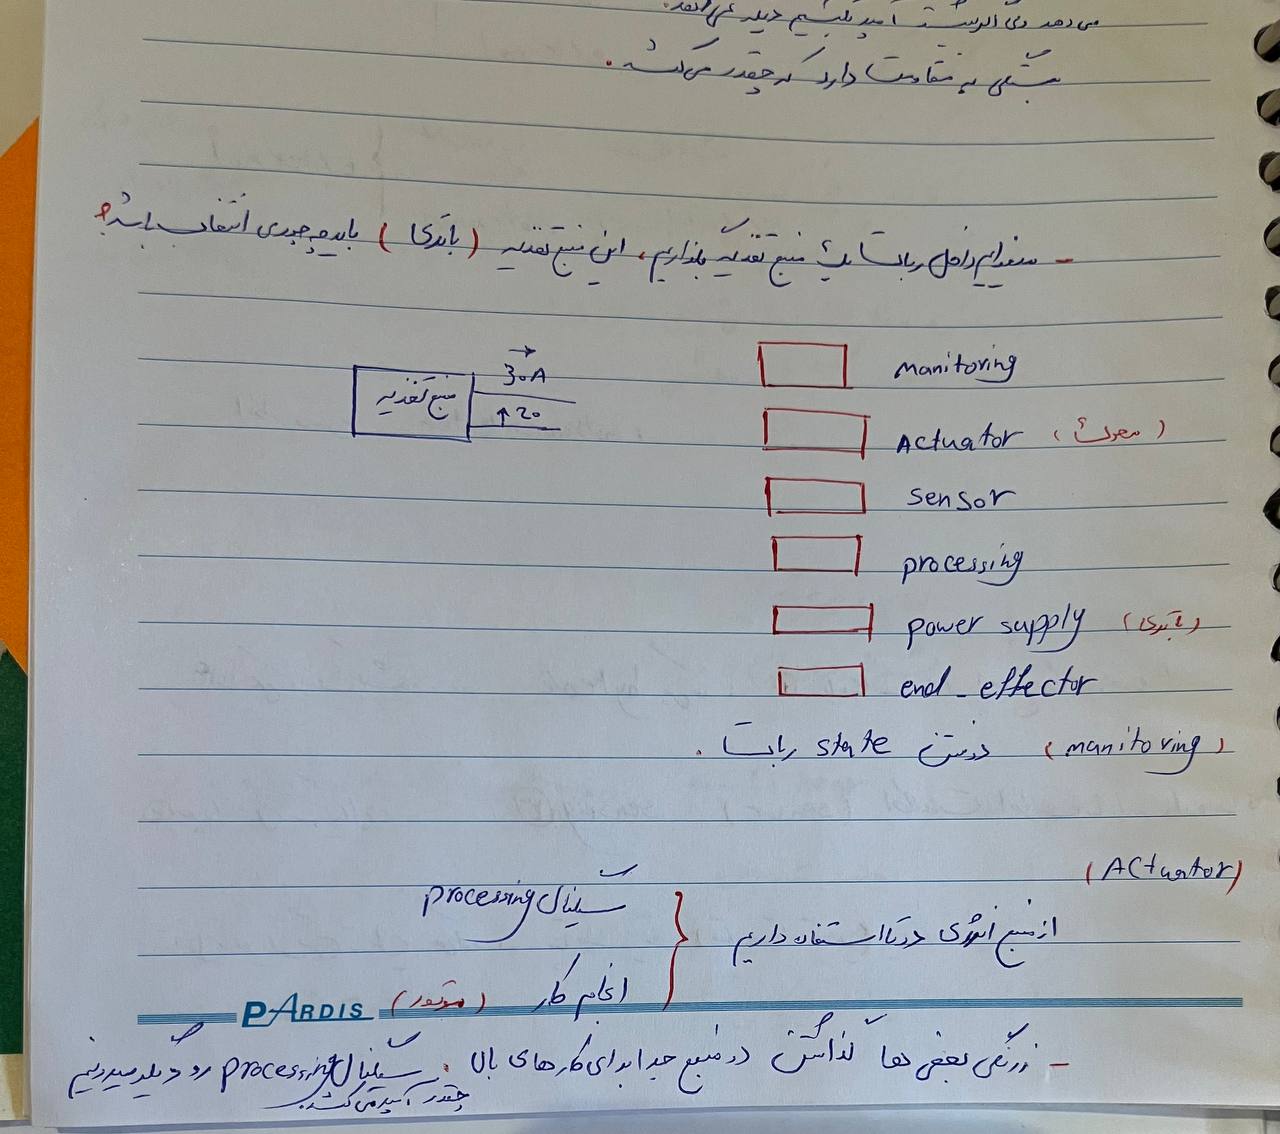 می‌دهد ولی اگر ست آمپر بکشیم دیگر نمی‌دهد.
بستگی به مقاومت دارد که چقدر می‌کشد.
- میخوایم داخل ربات یک منبع تغذیه بگذاریم، این منبع تغذیه (باتری) باید چجوری انتخاب بشه؟
manitoring
منبع تغذیه 30A
↑20
Actuator (محرک)
sensor
processing
power supply (باتری)
end_effector
(manitoring) دونستن state ربات.
(Actuator)
از منبع انرژی دوتا استفاده داریم
سیگنال processing
انجام کار (موتور)
PARDIS
- زرنگی بعضی ها گذاشتن دو منبع جدا برای کارهای بالا. سیگنال processing رو دیگه میدونیم
چقدر آمپر می‌کشد.